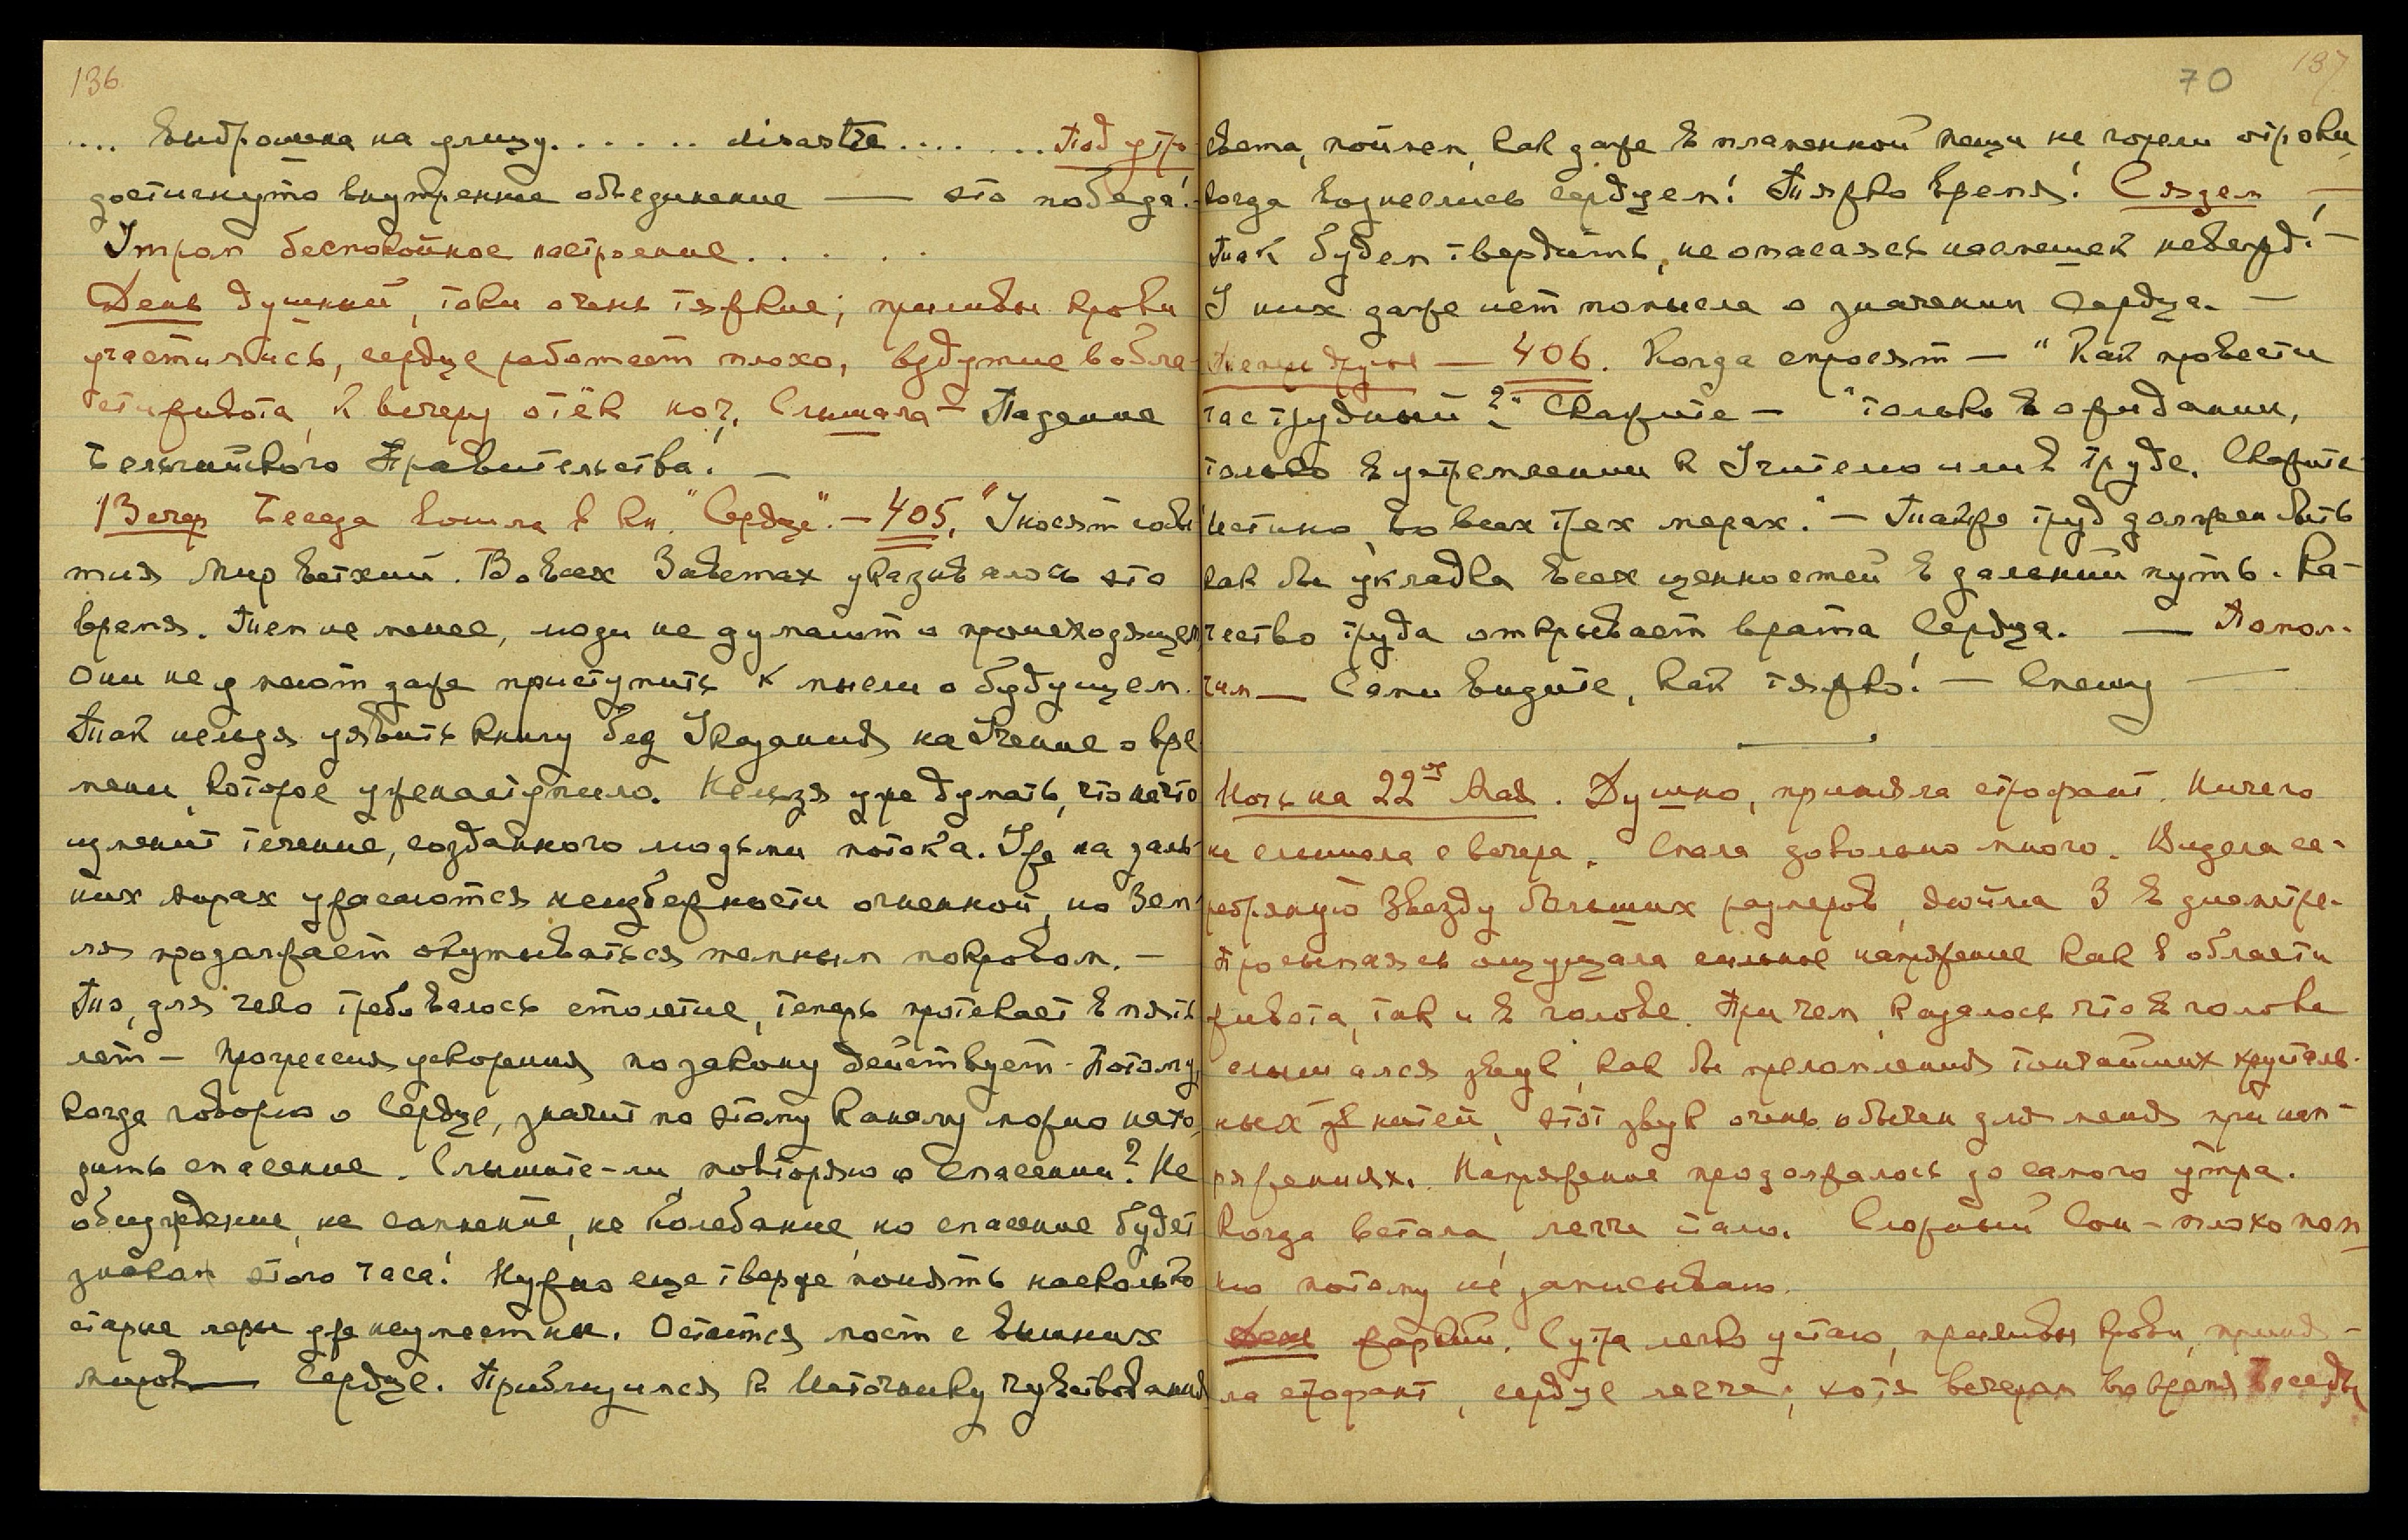 136
.... выброшена на улицу...... disastre....... Под утро
достигнуто внутреннее объединение — это победа!
Утром беспокойное настроение.....
День душный, токи очень тяжкие; приливы крови
участились, сердце работает плохо, вздутие в обла-
сти живота, к вечеру отёк ног. Слышала — Падение
Бельгийского Правительства! —
Вечер Беседа вошла в кн. "Сердце". — 405. "Уносят собы
тия Мир ветхий. Во всех Заветах указывалось это
время. Тем не менее, люди не думают о происходящем
Они не умеют даже приступить к мысли о будущем.
Так нельзя уявить книгу без Указания на Учение о вре
мени, которое уже наступило. Нельзя уже думать, что нечто
изменит течение, созданного людьми потока. Уже на даль-
них мирах ужасаются неизбежности огненной, но Зем-
ля продолжает окутываться темным покровом. —
То, для чего требовалось столетие, теперь протекает в пять
лет — прогрессия ускорения по закону действует. Потому,
когда говорю о Сердце, значит по этому каналу можно нахо-
дить спасение. Слышите-ли, повторяю о спасении? Не
обсуждение, не сомнение, не колебание, но спасение будет
знаком этого часа! Нужно еще тверже понять насколько
старые меры уже неуместны. Остается мост с Вышних
миров — Сердце. Приблизимся к Источнику чувствования
70 137
света, поймем, как даже в пламенной пещи не горели отроки,
когда вознеслись сердцем! Тяжко время! Сядем —
Так будем твердить, не опасаясь насмешек невежд! —
У них даже нет помысла о значении Сердца. —
— 406. Когда спросят — "Как провести
час трудный?" Скажите — "только в ожидании,
только в устремлении к Учителю или в труде. Скажите
истино, во всех трех мерах." — Также труд должен быть
как бы укладка всех ценностей в дальний путь. Ка-
чество труда открывает врата Сердца. — Помол-
чим — Сами видите, как тяжко! — Спешу —
Ночь на 22ое Мая. Душно, приняла строфант. Ничего
не слышала с вечера. Спала довольно много. Видела се-
ребряную Звезду больших размеров, дюйма 3 в диаметре.
Просыпаясь ощущала сильное напряжение как в области
живота, так и в голове. При чем, казалось что в голове
слышался звук, как бы преломления тончайших хрусталь-
ных нитей, этот звук очень обычен для меня при нап-
ряжениях. Напряжение продолжалось до самого утра.
Когда встала, легче стало. Сложный Сон — плохо пом
ню потому не записываю.
День жаркий. С утра легко устаю, приливы крови, приня-
ла строфант, сердце легче, хотя вечером во время Беседы